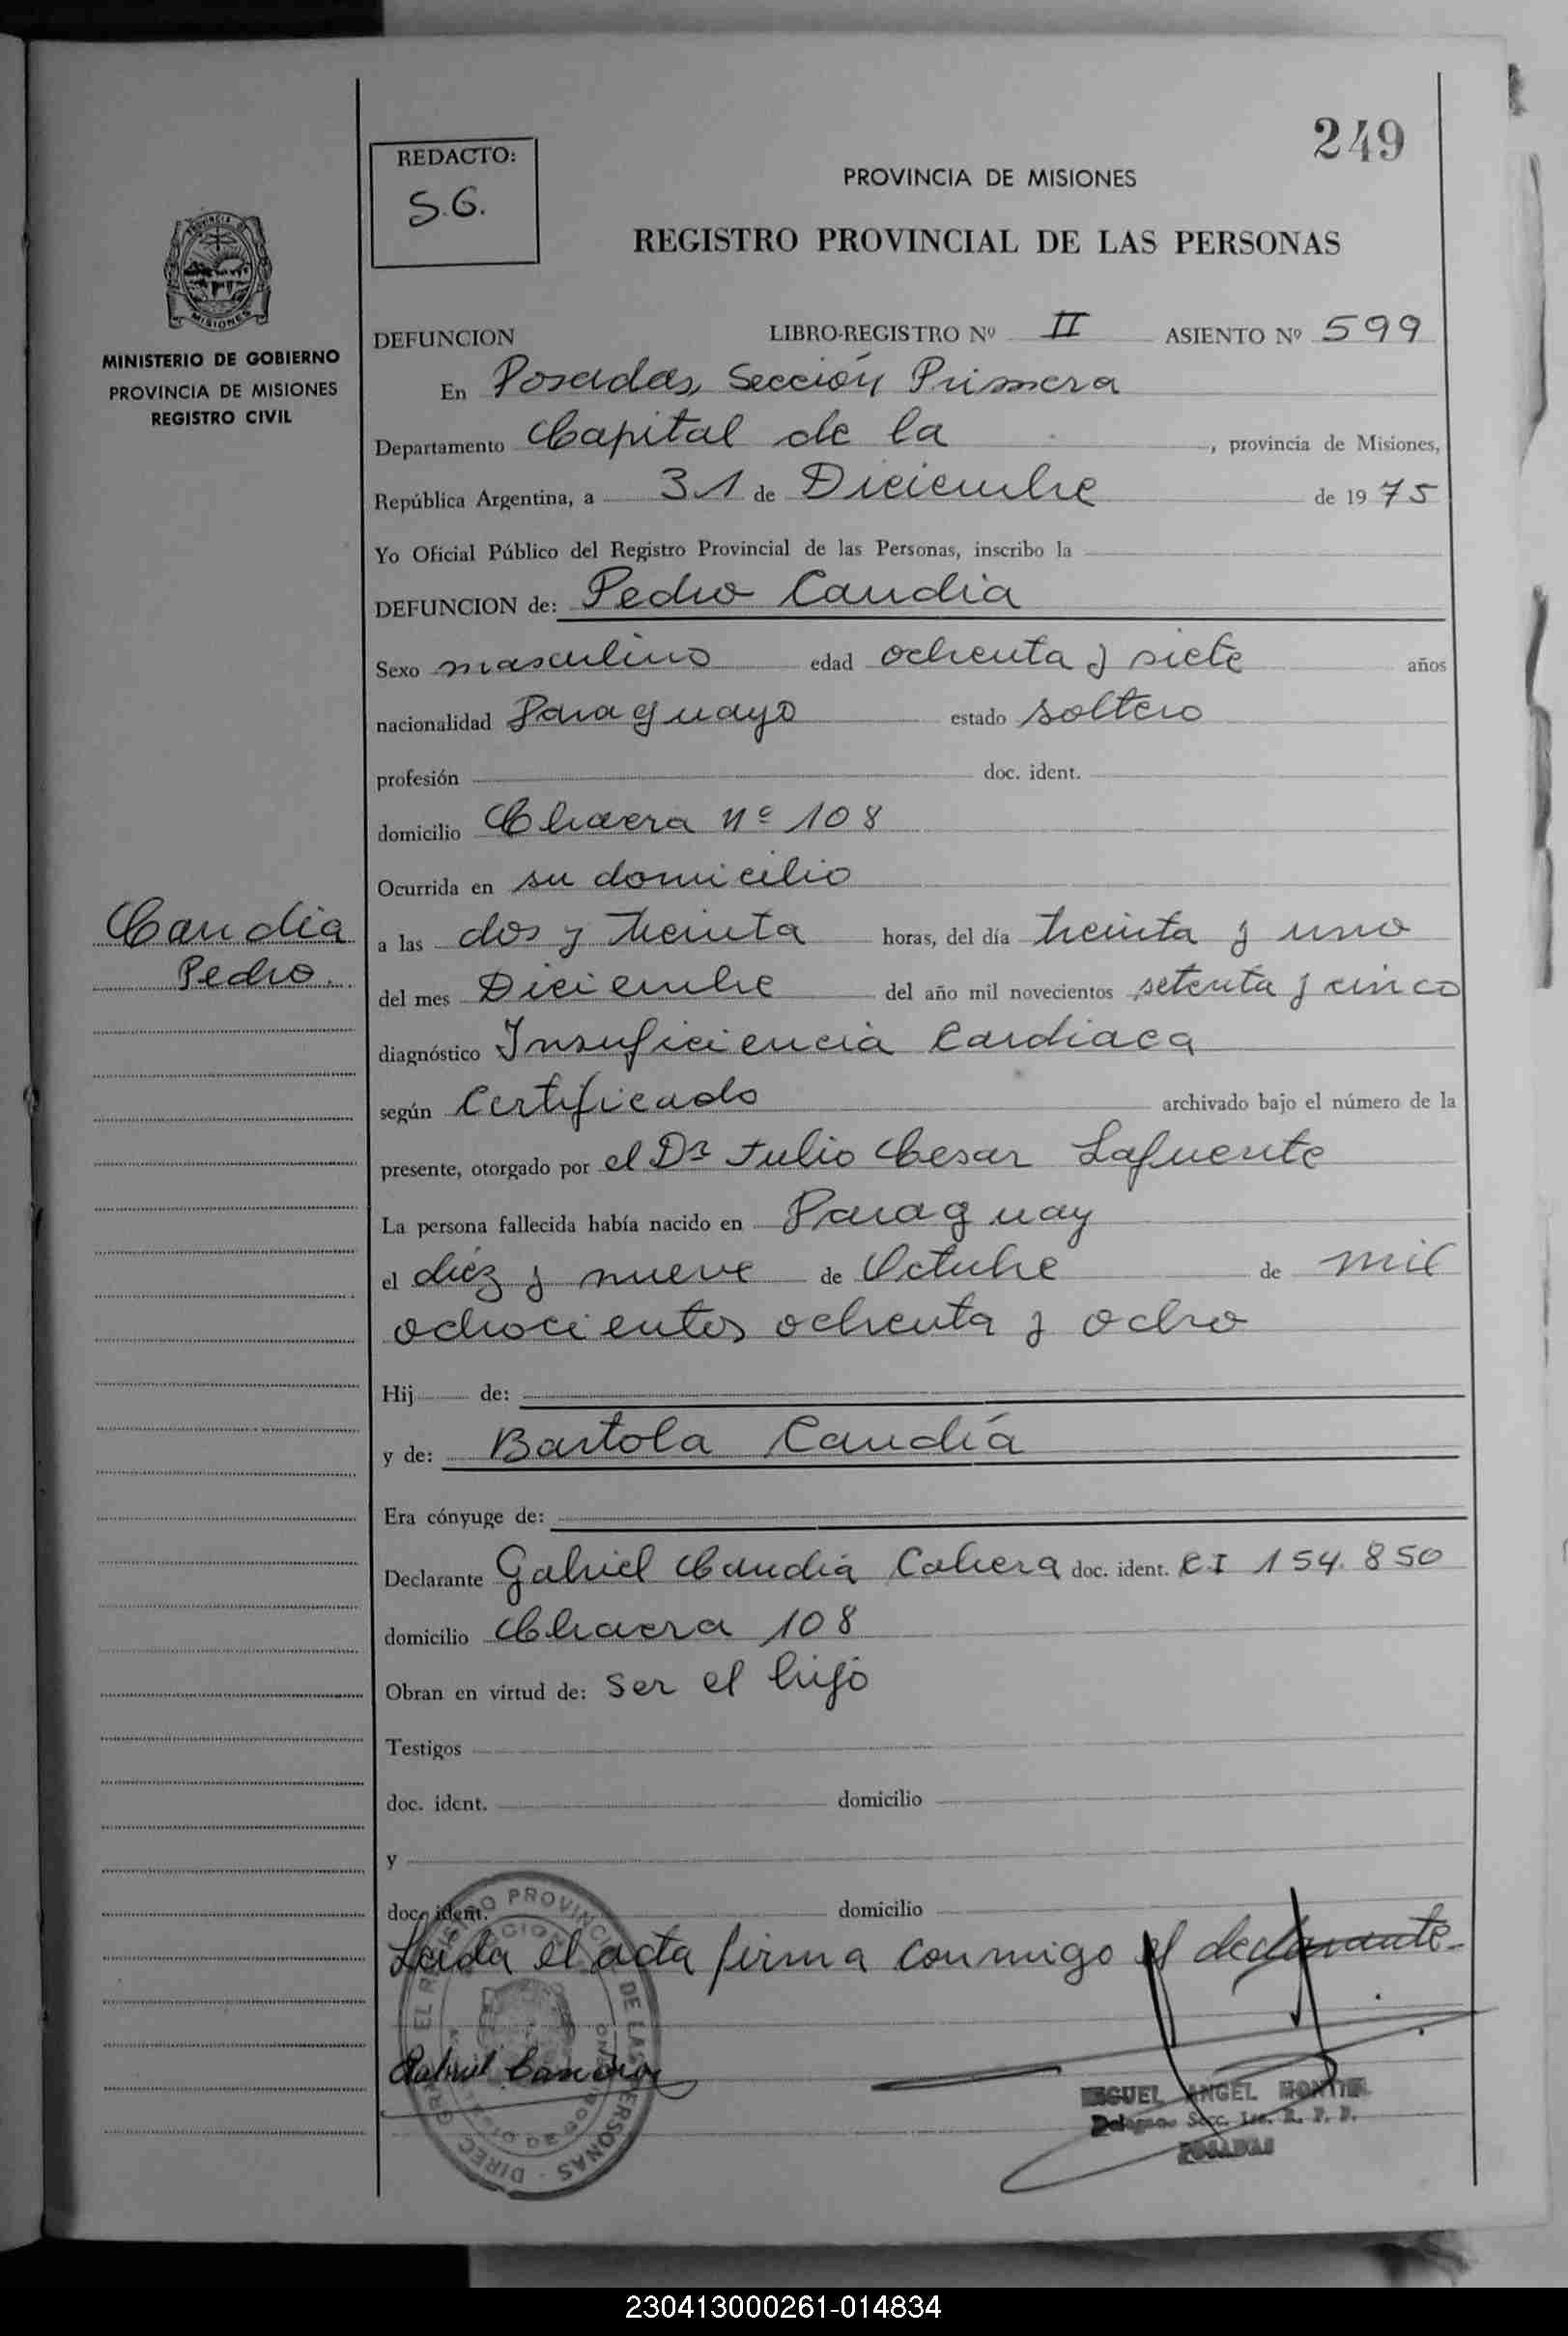 249
REDACTO:
S.G.
PROVINCIA DE MISIONES
REGISTRO PROVINCIAL DE LAS PERSONAS
MISIONES
MINISTERIO DE GOBIERNO
PROVINCIA DE MISIONES
REGISTRO CIVIL
DEFUNCION LIBRO-REGISTRO Nº II ASIENTO Nº 599
En Posadas, Sección Primera
Departamento Capital de la , provincia de Misiones,
República Argentina, a 31 de Diciembre de 1975
Yo Oficial Público del Registro Provincial de las Personas, inscribo la
DEFUNCION de: Pedro Candia
Sexo masculino edad ochenta y siete años
nacionalidad Paraguayo estado soltero
profesión doc. ident.
domicilio Chacra nº 108
Ocurrida en su domicilio
Candia
Pedro.
a las dos y treinta horas, del día treinta y uno
del mes Diciembre del año mil novecientos setenta y cinco
diagnóstico Insuficiencia Cardiaca
según Certificado archivado bajo el número de la
presente, otorgado por el Dr Julio Cesar Lafuente
La persona fallecida había nacido en Paraguay
el diez y nueve de Octubre de mil
ochocientos ochenta y ocho
Hij de:
y de: Bartola Candía
Era cónyuge de:
Declarante Gabriel Candia Cabrera doc. ident. CI 154.850
domicilio Chacra 108
Obran en virtud de: ser el hijo
Testigos
doc. ident. domicilio
y
doc. ident. domicilio
Leida el acta firma conmigo el declarante.
Gabriel Candia
MIGUEL ANGEL MONTIEL
Secc. 1ra. R. P. P.
POSADAS
230413000261-014834